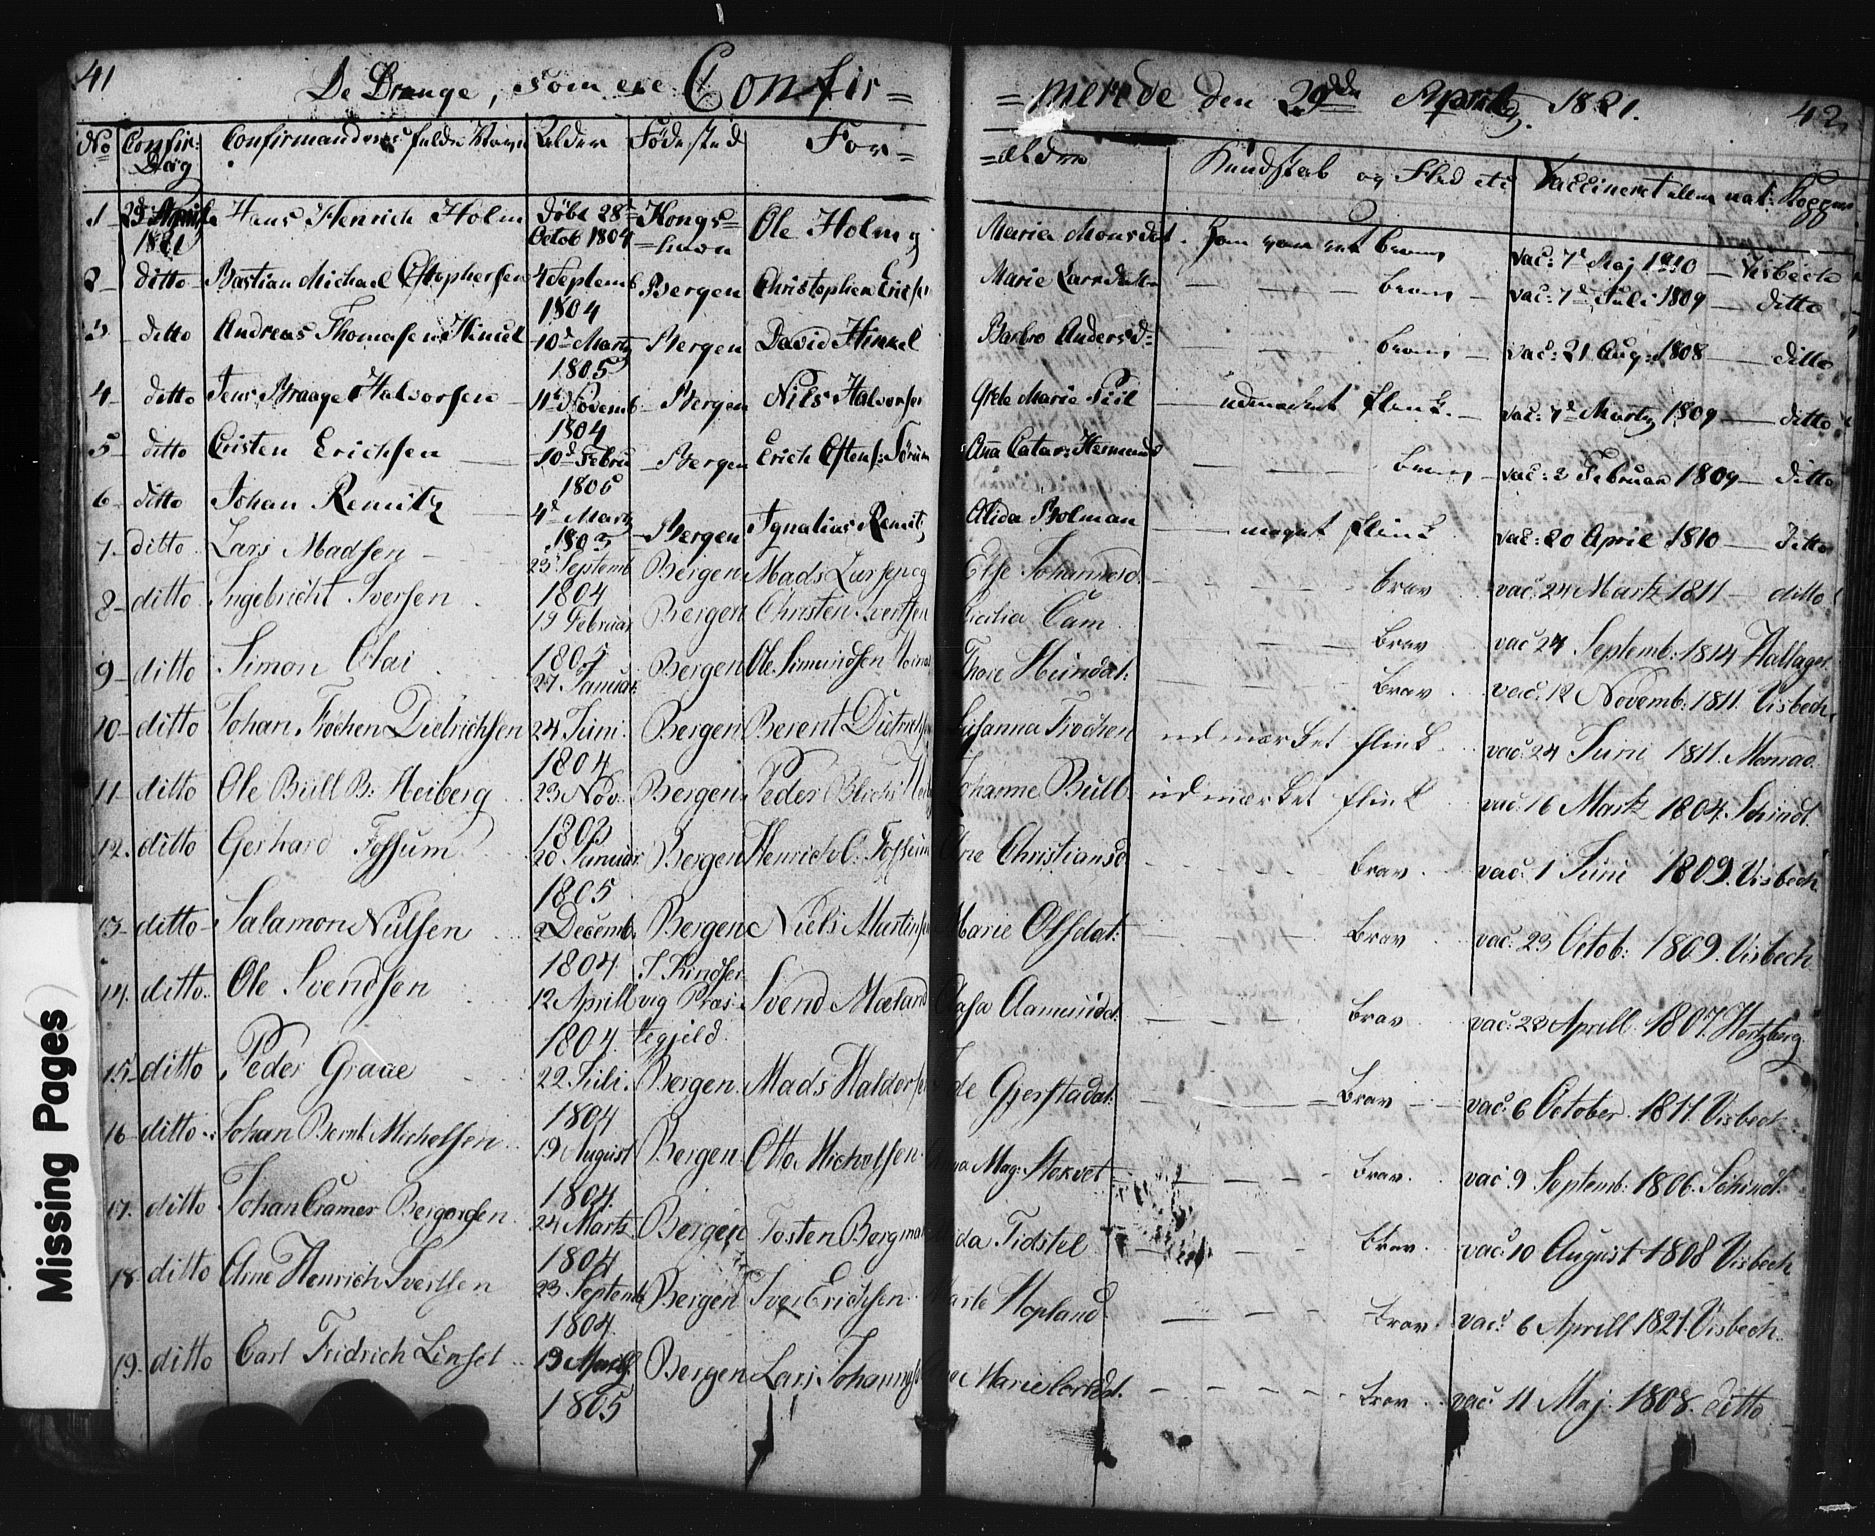 41 De Drenge, som ere Confir= =merede den 29de April 1821. 42
No Confir: Dag Confirmandernes fulde Navn Alder Fødested For= =ældre Kundskab og Flid etc Vaccineret eller nat: Kopper
1 29 April 1821 Hans Henrich Holm Døbt 28 Octob 1804 Kongs= Ole Holm og Maria Monsdat. vac: 7d Maj 1810 — Visbech
2 ditto Bastian Michael Chstophersen 4 Septemb 1804 Bergen Christopher Maria Larsdatter — — — vac: 7d Juli 1809 — ditto
3 ditto Andreas Thomasen Hinkel 10d Marty 1805 Bergen David Hinkel Barbro Andersd= — — — vac: 21 Aug: 1808 — ditto
4 ditto Jens Braage Halvorsen 11d Novemb 1804 Bergen Nils Halvorsen Grete Marie Piil — udmerket flink — vac: 7d Marty 1809 — ditto
5 ditto Cristen Erichsen 10d Febru 1805 Bergen Erich Ana Catar: — — — vac: 2 Februar 1809 — ditto
6 ditto Johan Remitz 4d Marty 1803 Bergen Ignatius Remitz Alida Bolman — meget flink vac: 20 April 1810 — ditto
7 ditto Lars Madsen 23 Septemb 1804 Bergen Mads Larsen og Else Johannesd. — — — brav vac: 24 Martz 1811 — ditto
8 ditto Ingebricht Iversen 19 Februar 1805 Bergen Christen Ivertsen Cicilia Cam — — — brav vac: 24 Septemb: 1814 Hallager
9 ditto Simon Olai 27 Januar Bergen Ole Simundsen Thore Heindat: — — — Brav vac: 12 Novemb: 1811. Visbech
10 ditto Johan Frochen Dietrichsen 24 Juni 1804 Bergen Berent Dietrichsen Susanna Frochen udmærket flink vac: 24 Juni 1811. Monrad
11 ditto Ole Bull B: Heiberg 23 Nov: 1803 Bergen Peder Blechs Johanne Bull udmærket flink vac: 16 Martz 1804. Schindl.
12 ditto Gerhard Fossum 20 Januar 1805 Bergen Henrich C: Fossum Ane Christiansd — — — brav vac: 1 Juni 1809. Visbech
13 ditto Salamon Nilsen 2 Decemb. 1804 Bergen Niels Martinsen Marie Olsdat: — — — Brav vac: 23 Octob: 1809. Visbech
14 ditto Ole Svendsen 12 Aprill 1804 I Kindservig Præstegjeld. Svend Mæland Aasa Aamundd. — — — Brav vac: 23 Aprill 1807. Hertzberg
15 ditto Peder Graae 22 Juli 1804 Bergen Mads Haldorsen Gjerstadat: — — — Brav vac: 6 October 1811. Visbech
16 ditto Johan Bernt Michelsen 19 August 1804 Bergen Otto Michelsen Anna Mag: Stokvet — — — brav vac: 9 Septemb: 1806. Schindl:
17 ditto Johan Cramer Bergersen 24 Martz 1804 Bergen Tosten Bergman Alida Tidstel — — — brav vac: 10 August 1808 Visbech
18 ditto Arne Henrich Ivertsen 23 Septemb 1804 Bergen Iver Erichsen Marte Hopland — — — brav. vac: 6 Aprill 1821. Visbech
19 ditto Carl Fridrich Linsel 13 1805 Bergen Lars — — — brav vac: 11 Maj 1808. ditto
Missing Pages( )